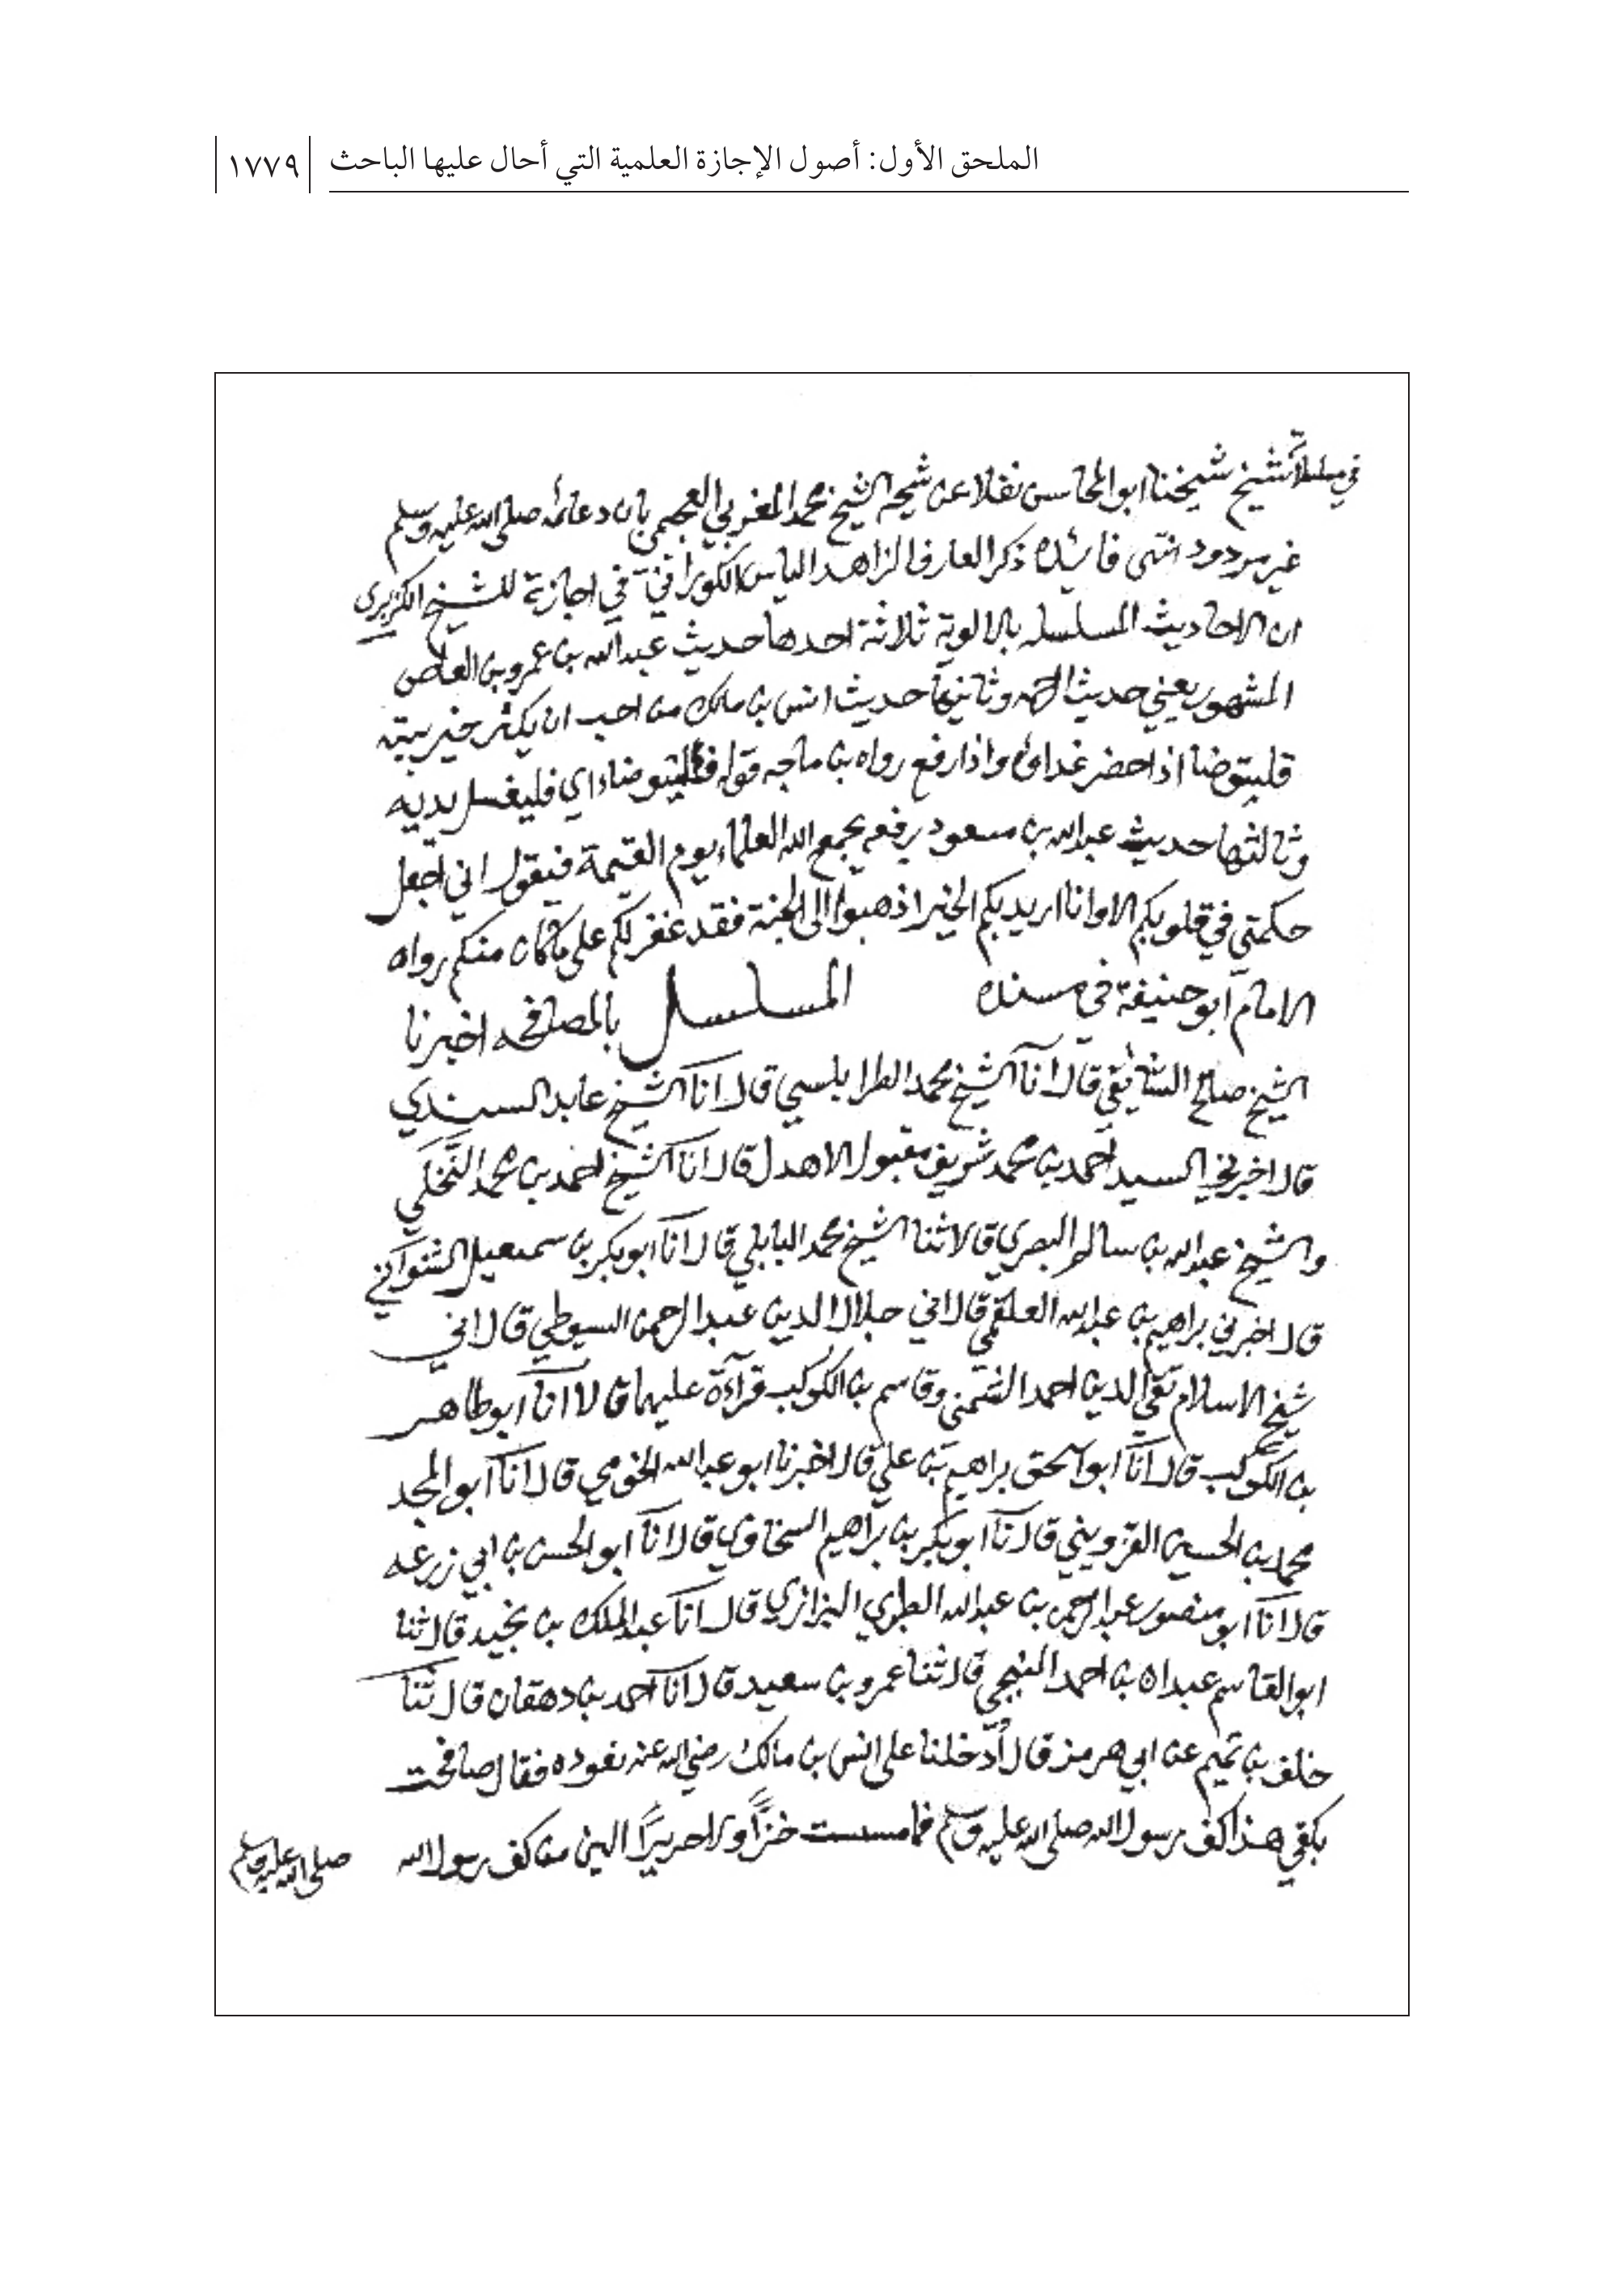 الملحق الأول: أصول الإجازة العلمية التي أحال عليها الباحث ١٧٧٩
شيخ شيخنا ابو المحاسن نقلا عن شيخه الشيخ محمد المغربي بان دعائه صلى الله عليه وسلم
غير مردود انتهى فائدة ذكر العارف الزاهد الياس الكوراني في اجازته للشيخ الكزبرى
ان الاحاديث المسلسله بالاولية ثلاثة احدها حديث عبد الله بن عمرو بن العاص
المشهور يعني حديث الرحمه وثانيها حديث انس بن مالك من احب ان يكثر خير بيته
فليتوضا اذا حضر غداؤه واذا رفع رواه بن ماجه قوله فليتوضاء اي فليغسل يديه
وثالثها حديث عبد الله بن مسعود يرفعه يجمع الله العلماء يوم القيمة فيقول اني اجعل
حكمتي في قلوبكم الا وانا اريد بكم الخير اذهبوا الى الجنة فقد غفر لكم على ما كان منكم رواه
الامام ابو حنيفة في مسنده المسلسل بالمصافحه اخبرنا
الشيخ صالح قال انا الشيخ محمد الطرابلسي قال انا الشيخ عابد السندي
قال اخبرني السيد احمد بن محمد شريف مقبول الاهدل قال انا الشيخ احمد بن محمد النخلي
والشيخ عبد الله بن سالم البصري قالا ثنا الشيخ محمد البابلي قال انا ابو بكر بن سمعيل الشنواني
قال اخبرني براهيم بن عبد الله العلقمي قال اني جلال الدين عبد الرحمن السيوطي قال اني
شيخ الاسلام تقي الدين احمد الشمني وقاسم بن الكوكب قرآءة عليهما قالا انا ابو طاهر
بن الكوكب قال انا ابو اسحق براهيم بن علي قال اخبرنا ابو عبد الله الخويي قال انا ابو المجد
محمد بن الحسين القزويني قال انا ابو بكر بن براهيم السخاوي قال انا ابو الحسن بن ابي زرعه
قال انا ابو منصور عبد الرحمن بن عبد الله البزازي قال انا عبد الملك بن نجيد قال ثنا
ابو القاسم عبدان بن احمد المنبجي قال ثنا عمرو بن سعيد قال انا احمد بن دهقان قال ثنا
خلف بن تميم عن ابي هرمز قال دخلنا على انس بن مالك رضي الله عنه نعوده فقال صافحت
بكفي هذا كف رسول الله صلى الله عليه وسلم فما مسست خزا ولا حريرا الين من كف رسول الله صلى الله عليه وسلم